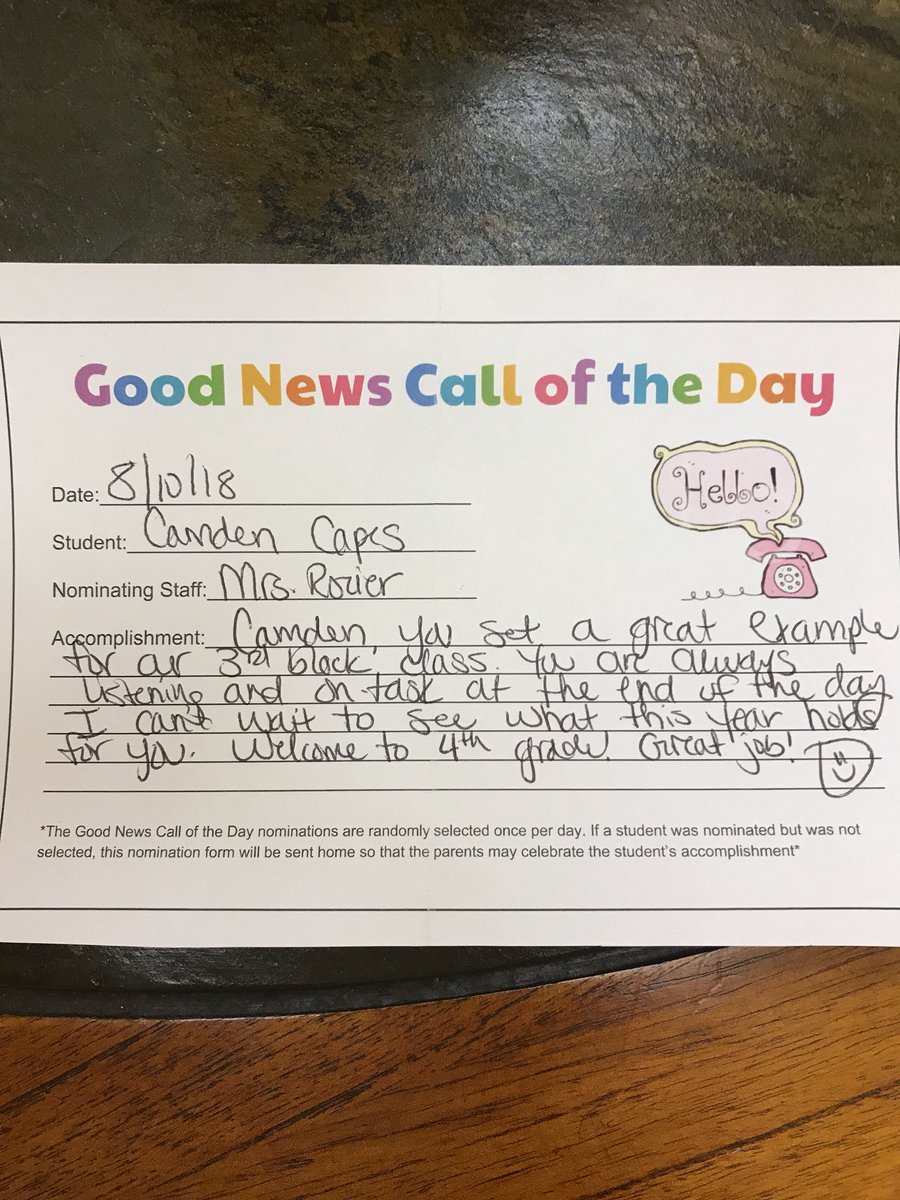 Good News Call of the Day
Hello!
Date: 8/10/18
Student: Camden Capes
Nominating Staff: Mrs. Rozier
Accomplishment: Camden, you set a great example
for our 3rd block class. You are always
listening and on task at the end of the day.
I can't wait to see what this year holds
for you. Welcome to 4th grade! Great job!
*The Good News Call of the Day nominations are randomly selected once per day. If a student was nominated but was not
selected, this nomination form will be sent home so that the parents may celebrate the student's accomplishment*